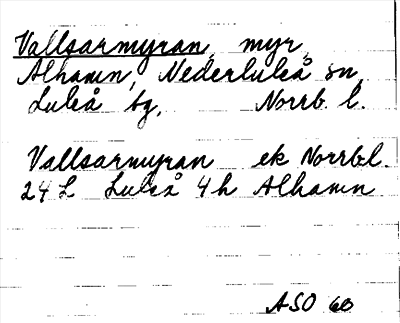 Vallsarmyran, myr,
Alhamn, Nederluleå sn,
Luleå tg, Norrb. l.
Vallsarmyran ek Norrb.l.
24 L Luleå 4h Alhamn
ASO 60